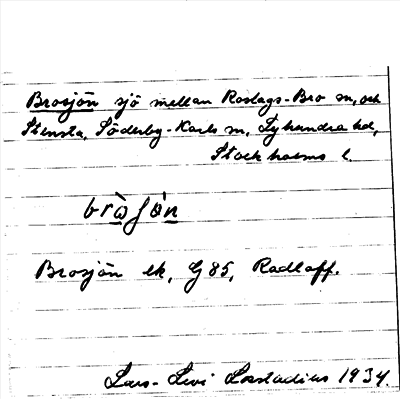 Brosjön sjö mellan Roslags-Bro sn, och
Stensta, Söderby-Karls sn, Lyhundra hd,
Stockholms l.
brὼʃö́n
Brosjön ek, G 85, Radloff.
Lars-Levi Læstadius 1934.